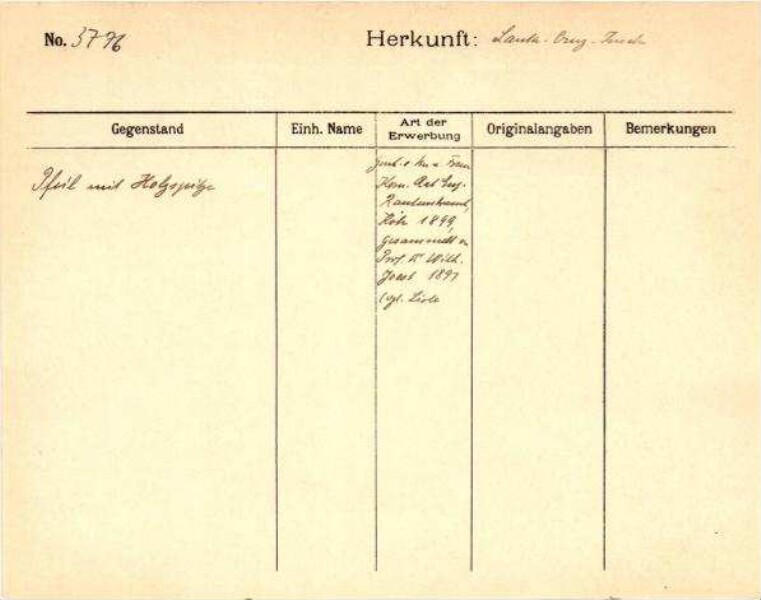 No. 3796
Herkunft: Santa-Cruz-Inseln
Gegenstand
Einh. Name
Art der
Erwerbung
Originalangaben
Bemerkungen
Pfeil mit Holzspitze
Gesch. v. Frau
Kom. Rat Eug.
Rautenstrauch,
Köln 1899,
gesammelt v.
Prof. Dr Wilh.
Joest 1897
(vgl. Liste